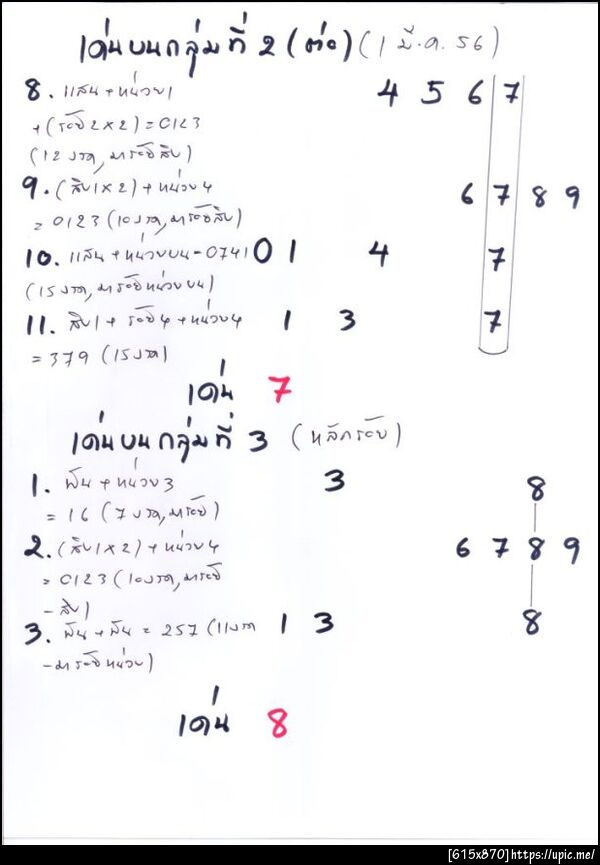 เด่นบนกลุ่มที่ 2 (ต่อ) (1 มี.ค. 56)
8. แสน + หน่วย 1 4 5 6 7
+ (ร้อย 2 x 2) = 0123
(12 งวด, มาร้อยสิบ)
9. (สิบ 1 x 2) + หน่วย 4 6 7 8 9
= 0123 (10 งวด, มาร้อยสิบ)
10. แสน + หน่วยบน = 0741 0 1 4 7
(15 งวด, มาร้อยหน่วยบน)
11. สิบ 1 + ร้อย 4 + หน่วย 4 1 3 7
= 379 (15 งวด)
เด่น 7
เด่นบนกลุ่มที่ 3 (หลักร้อย)
1. พัน + หน่วย 3 3 8
= 16 (7 งวด, มาร้อย)
2. (สิบ 1 x 2) + หน่วย 4 6 7 8 9
= 0123 (10 งวด, มาร้อย
- สิบ)
3. พัน + พัน = 257 (11 งวด 1 3 8
- มาร้อยหน่วย)
เด่น 8
[615x870]https://upic.me/